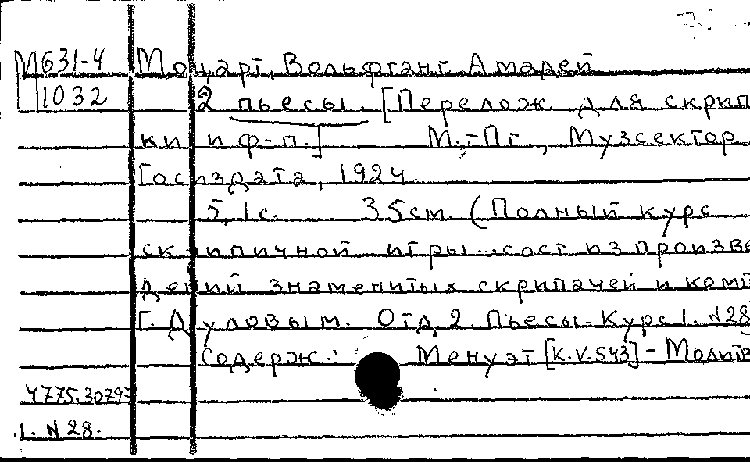 М631-4 Моцарт, Вольфганг Амадей
1032 2 пьесы. [Перелож. для скрип
ки и ф-п.] М.-Пг., Музсектор
Госиздата, 1924
5, 1 с. 35 см. (Полный курс
скрипичной игры сост. из произве
дений знаменитых скрипачей и комп
Г. Дуловым. Отд. 2. Пьесы. Курс 1. N28
Содерж.: Менуэт [K.V.543] - Молитв
4775.30797
1. N 28.